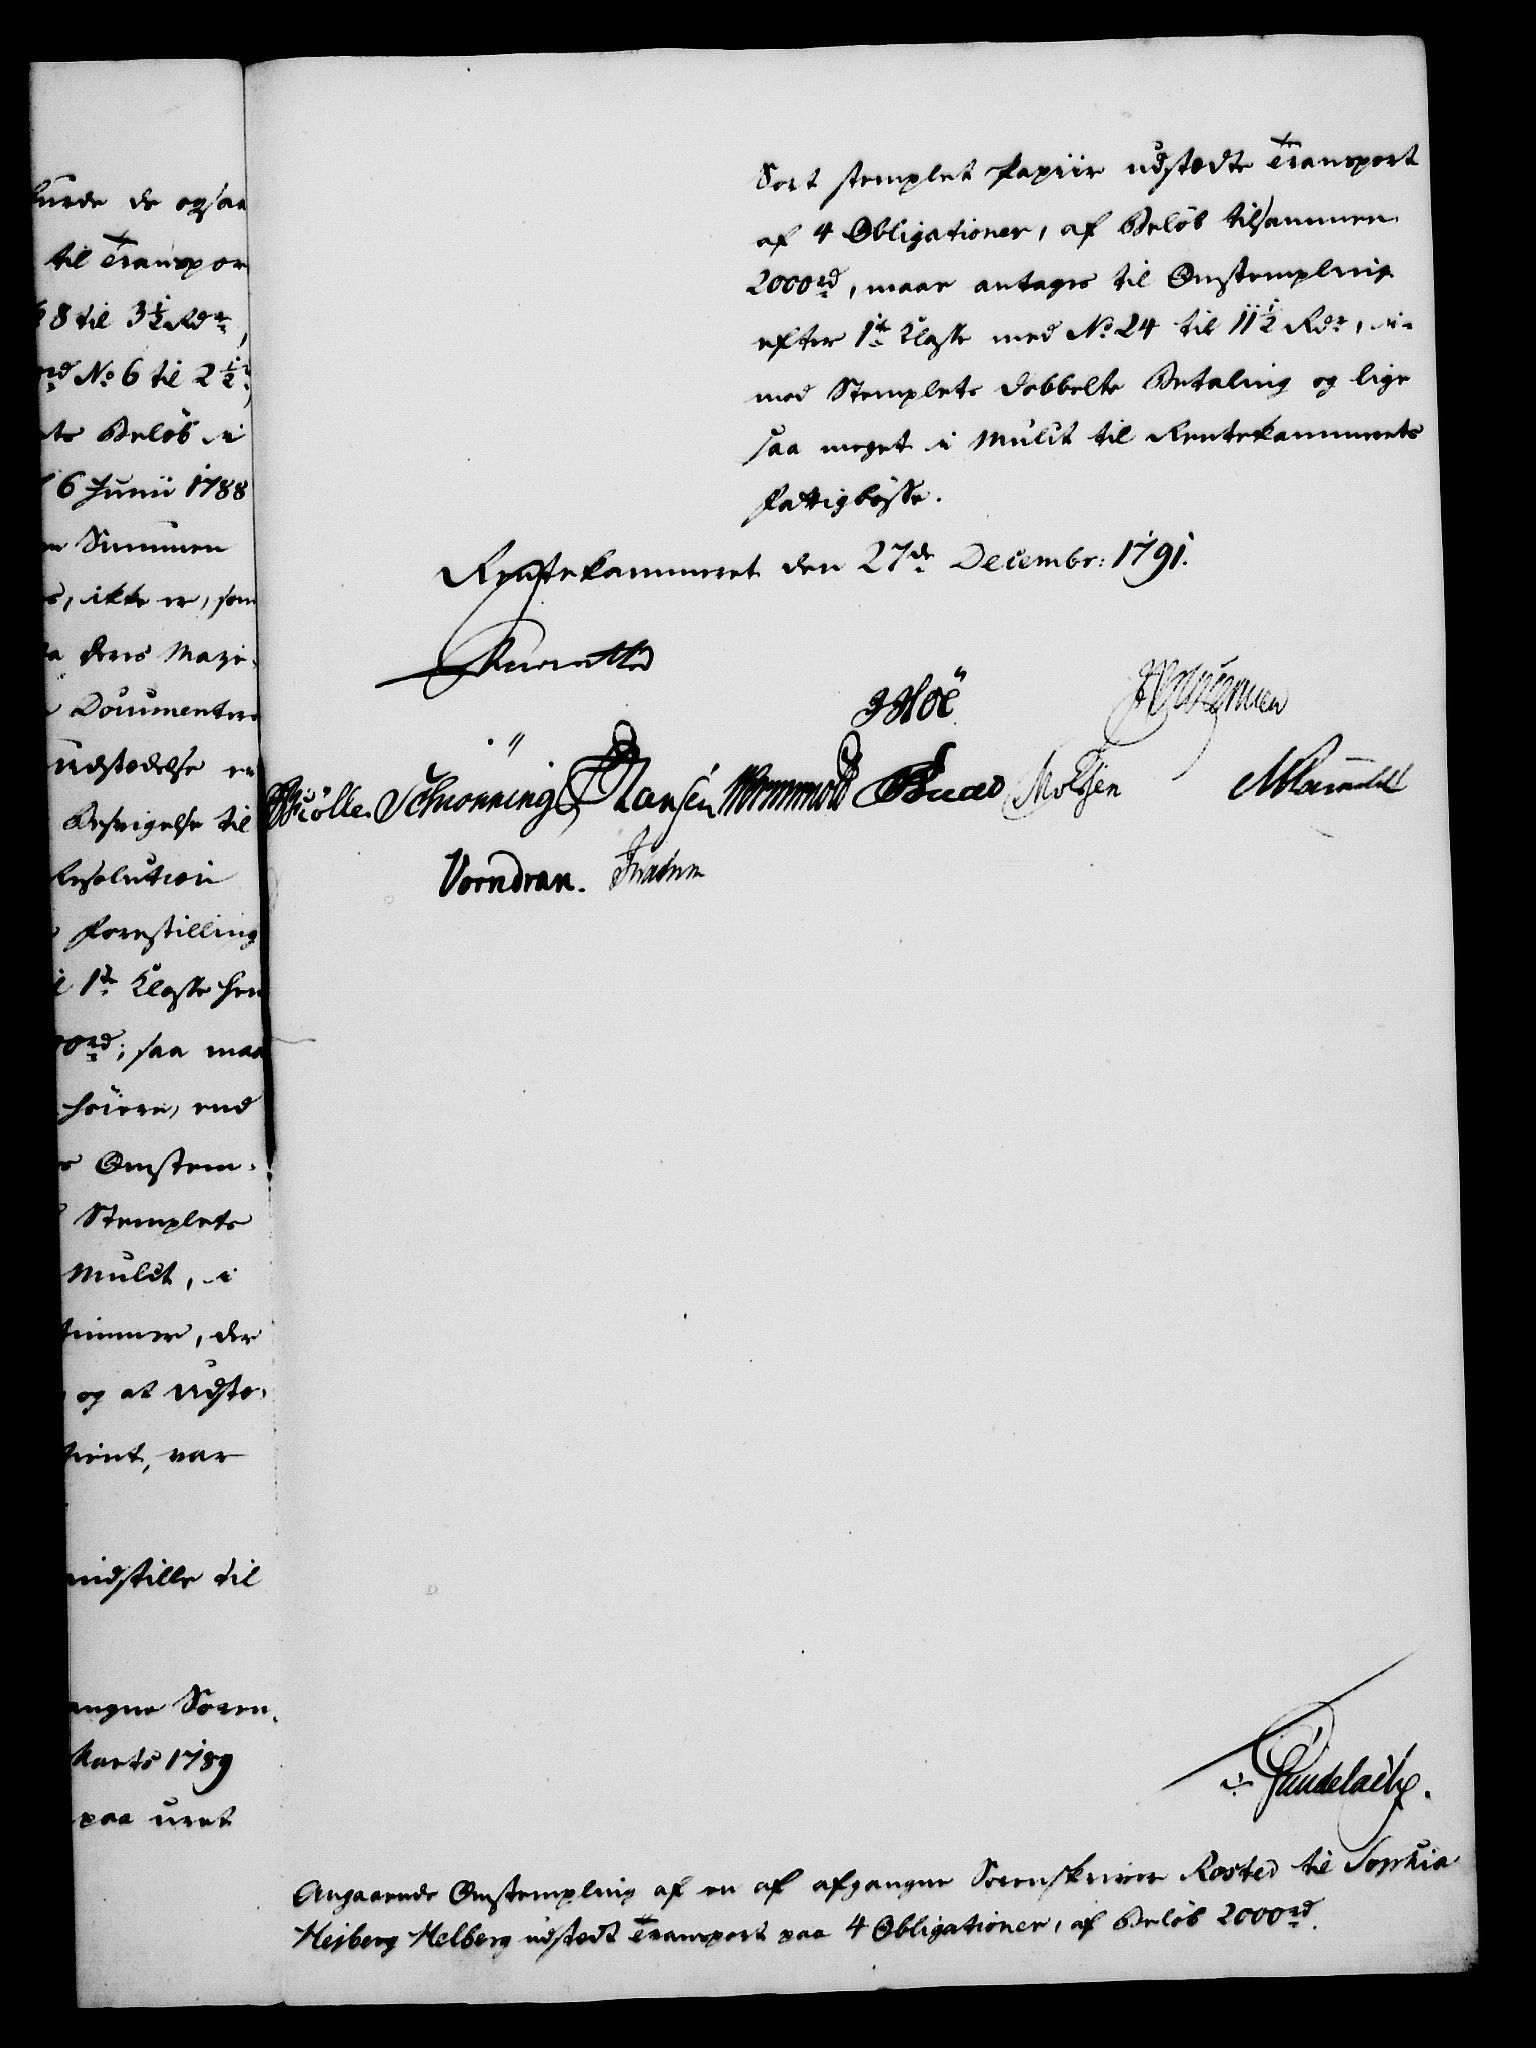 burde de ogsaa
til Transpor
8 til 3½ Rdr,
No 6 til 2½
Beløb i
6 Junii 1788
Summen
ikke er, som
deres Mage-
Documenters
Udstædelse er
Besvigelse til
Resolution
Forestilling
1te Klasse hen
rd; saa maa
høiere, end
Omstem-
Stemplets
Mulct, i
, der
og at udste-
, var
indstille til
Soren-
Marts 1789
paa uret
Sort stemplet Papiir udstædte Transport
af 4 Obligationer, af Beløb tilsammen
2000rd, maae antages til Omstempling
efter 1te Klasse med No 24 til 11½ Rdr, i-
mod Stemplets dobbelte Betaling og lige
saa meget i Mulct til Rentekammerets
Fattigbøsse.
Rentekammeret den 27de Decembr: 1791.
Schiönning Hansen Wormskiold
Vorndran.
Angaaende Omstempling af en af afgangne Sorenskriver Rosted til Sophia
Hejberg Helberg udstædt Transport paa 4 Obligationer, af Beløb 2000rd.